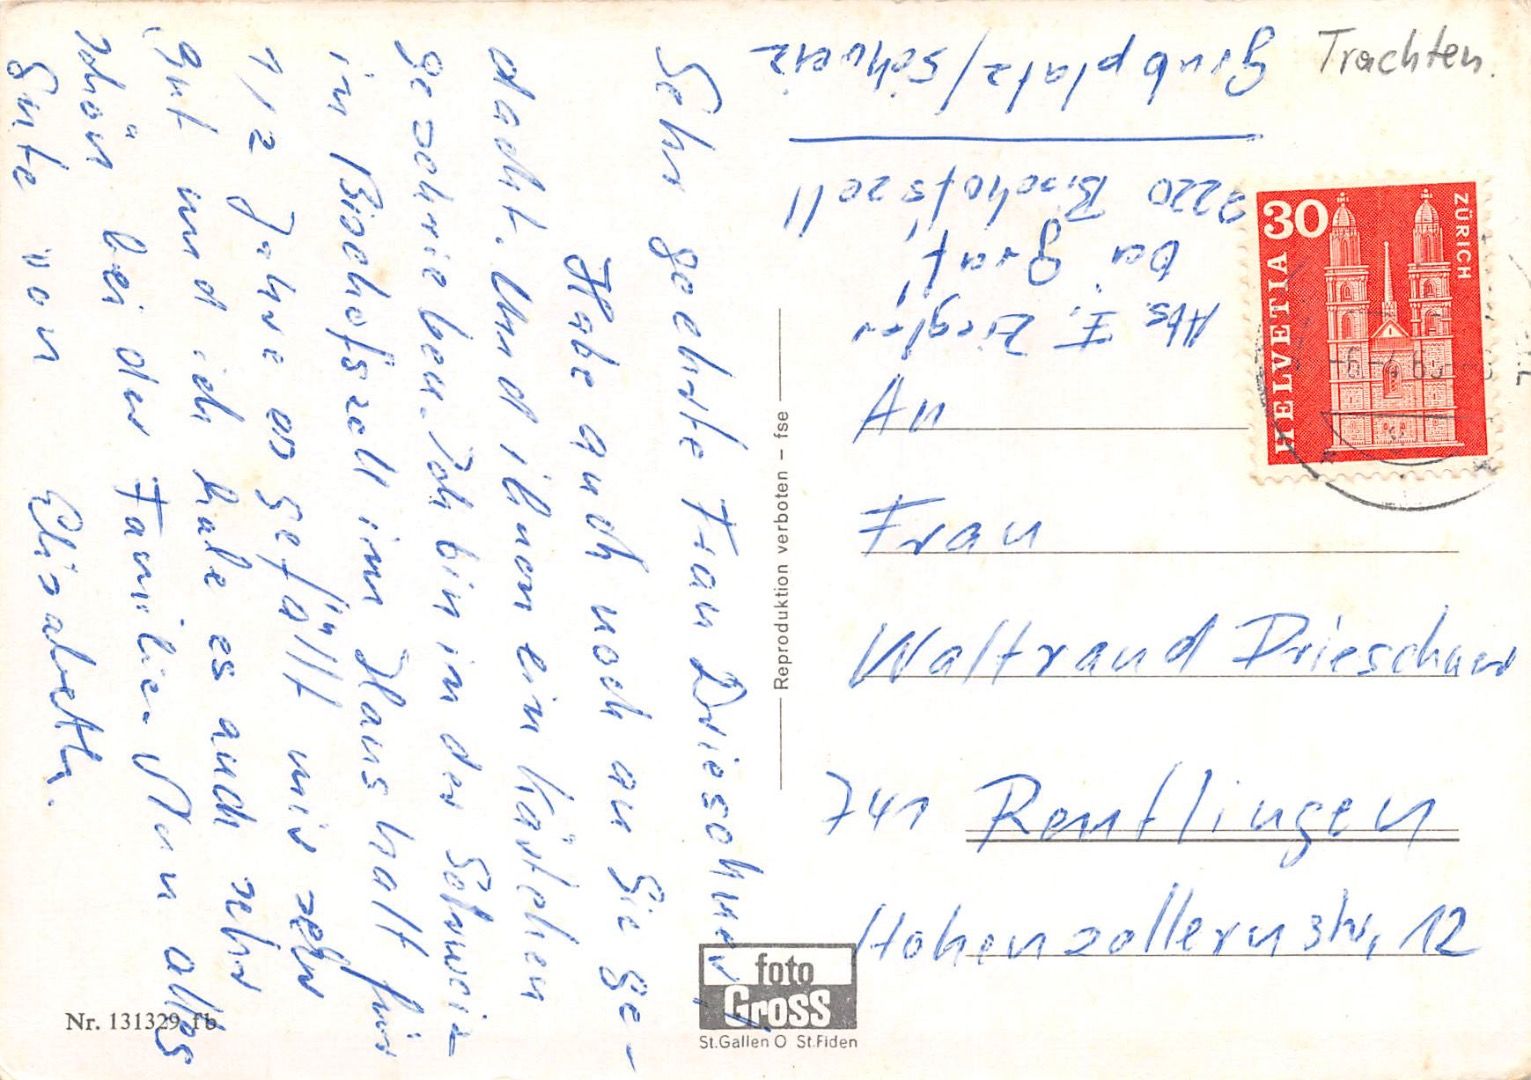 Sehr geehrte Frau Drieschner!
Habe auch noch an Sie ge-
dacht. Und ihnen ein Kärtchen
geschrieben. Ich bin in der Schweiz
in Bischofszell im Haushalt für
1/2 Jahr es gefällt mir sehr
gut und ich habe es auch sehr
schön bei der Familie. Nun alles
Gute von Elisabeth.
Abs. E. Ziegler
bei Graf
9220 Bischofszell
Grubplatz/Schweiz
Trachten.
HELVETIA
30
ZÜRICH
An
Frau
Waltraud Drieschner
741 Reutlingen
Hohenzollernstr. 12
Reproduktion verboten – fse
foto
Gross
St.Gallen O St.Fiden
Nr. 131329 fb